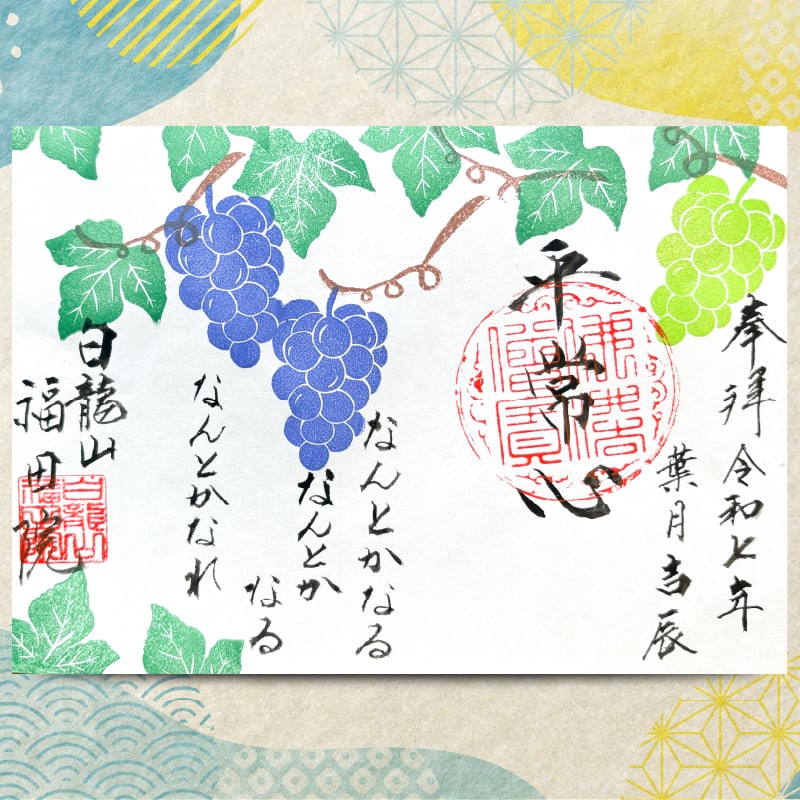 奉拝 令和七年
葉月吉辰
平常心
なんとかなる
なんとか
なる
なんとかなれ
白龍山
福田院
白龍山
福田院